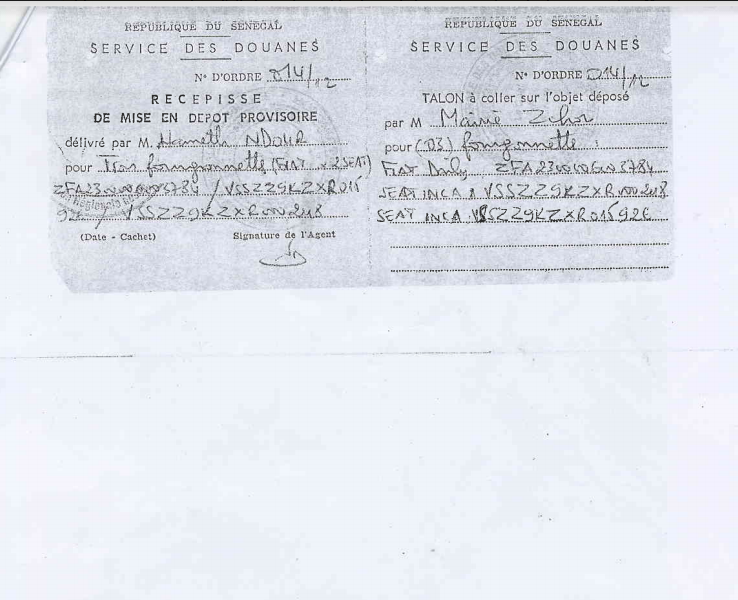 REPUBLIQUE DU SENEGAL
SERVICE DES DOUANES
N° D'ORDRE 014/12
RECEPISSE
DE MISE EN DEPOT PROVISOIRE
délivré par M. Hameth NDOUR
pour Trois fourgonnette (FIAT x 2 SEAT)
/ VSSZZ9KZXR015
92 / VSSZZ9KZXR000248
(Date - Cachet) Signature de l'Agent
REPUBLIQUE DU SENEGAL
SERVICE DES DOUANES
N° D'ORDRE 014/12
TALON à coller sur l'objet déposé
par M Mairie
pour (03) fourgonnette :
FIAT
SEAT INCA VSSZZ9KZXR000248
SEAT INCA VSSZZ9KZXR015926